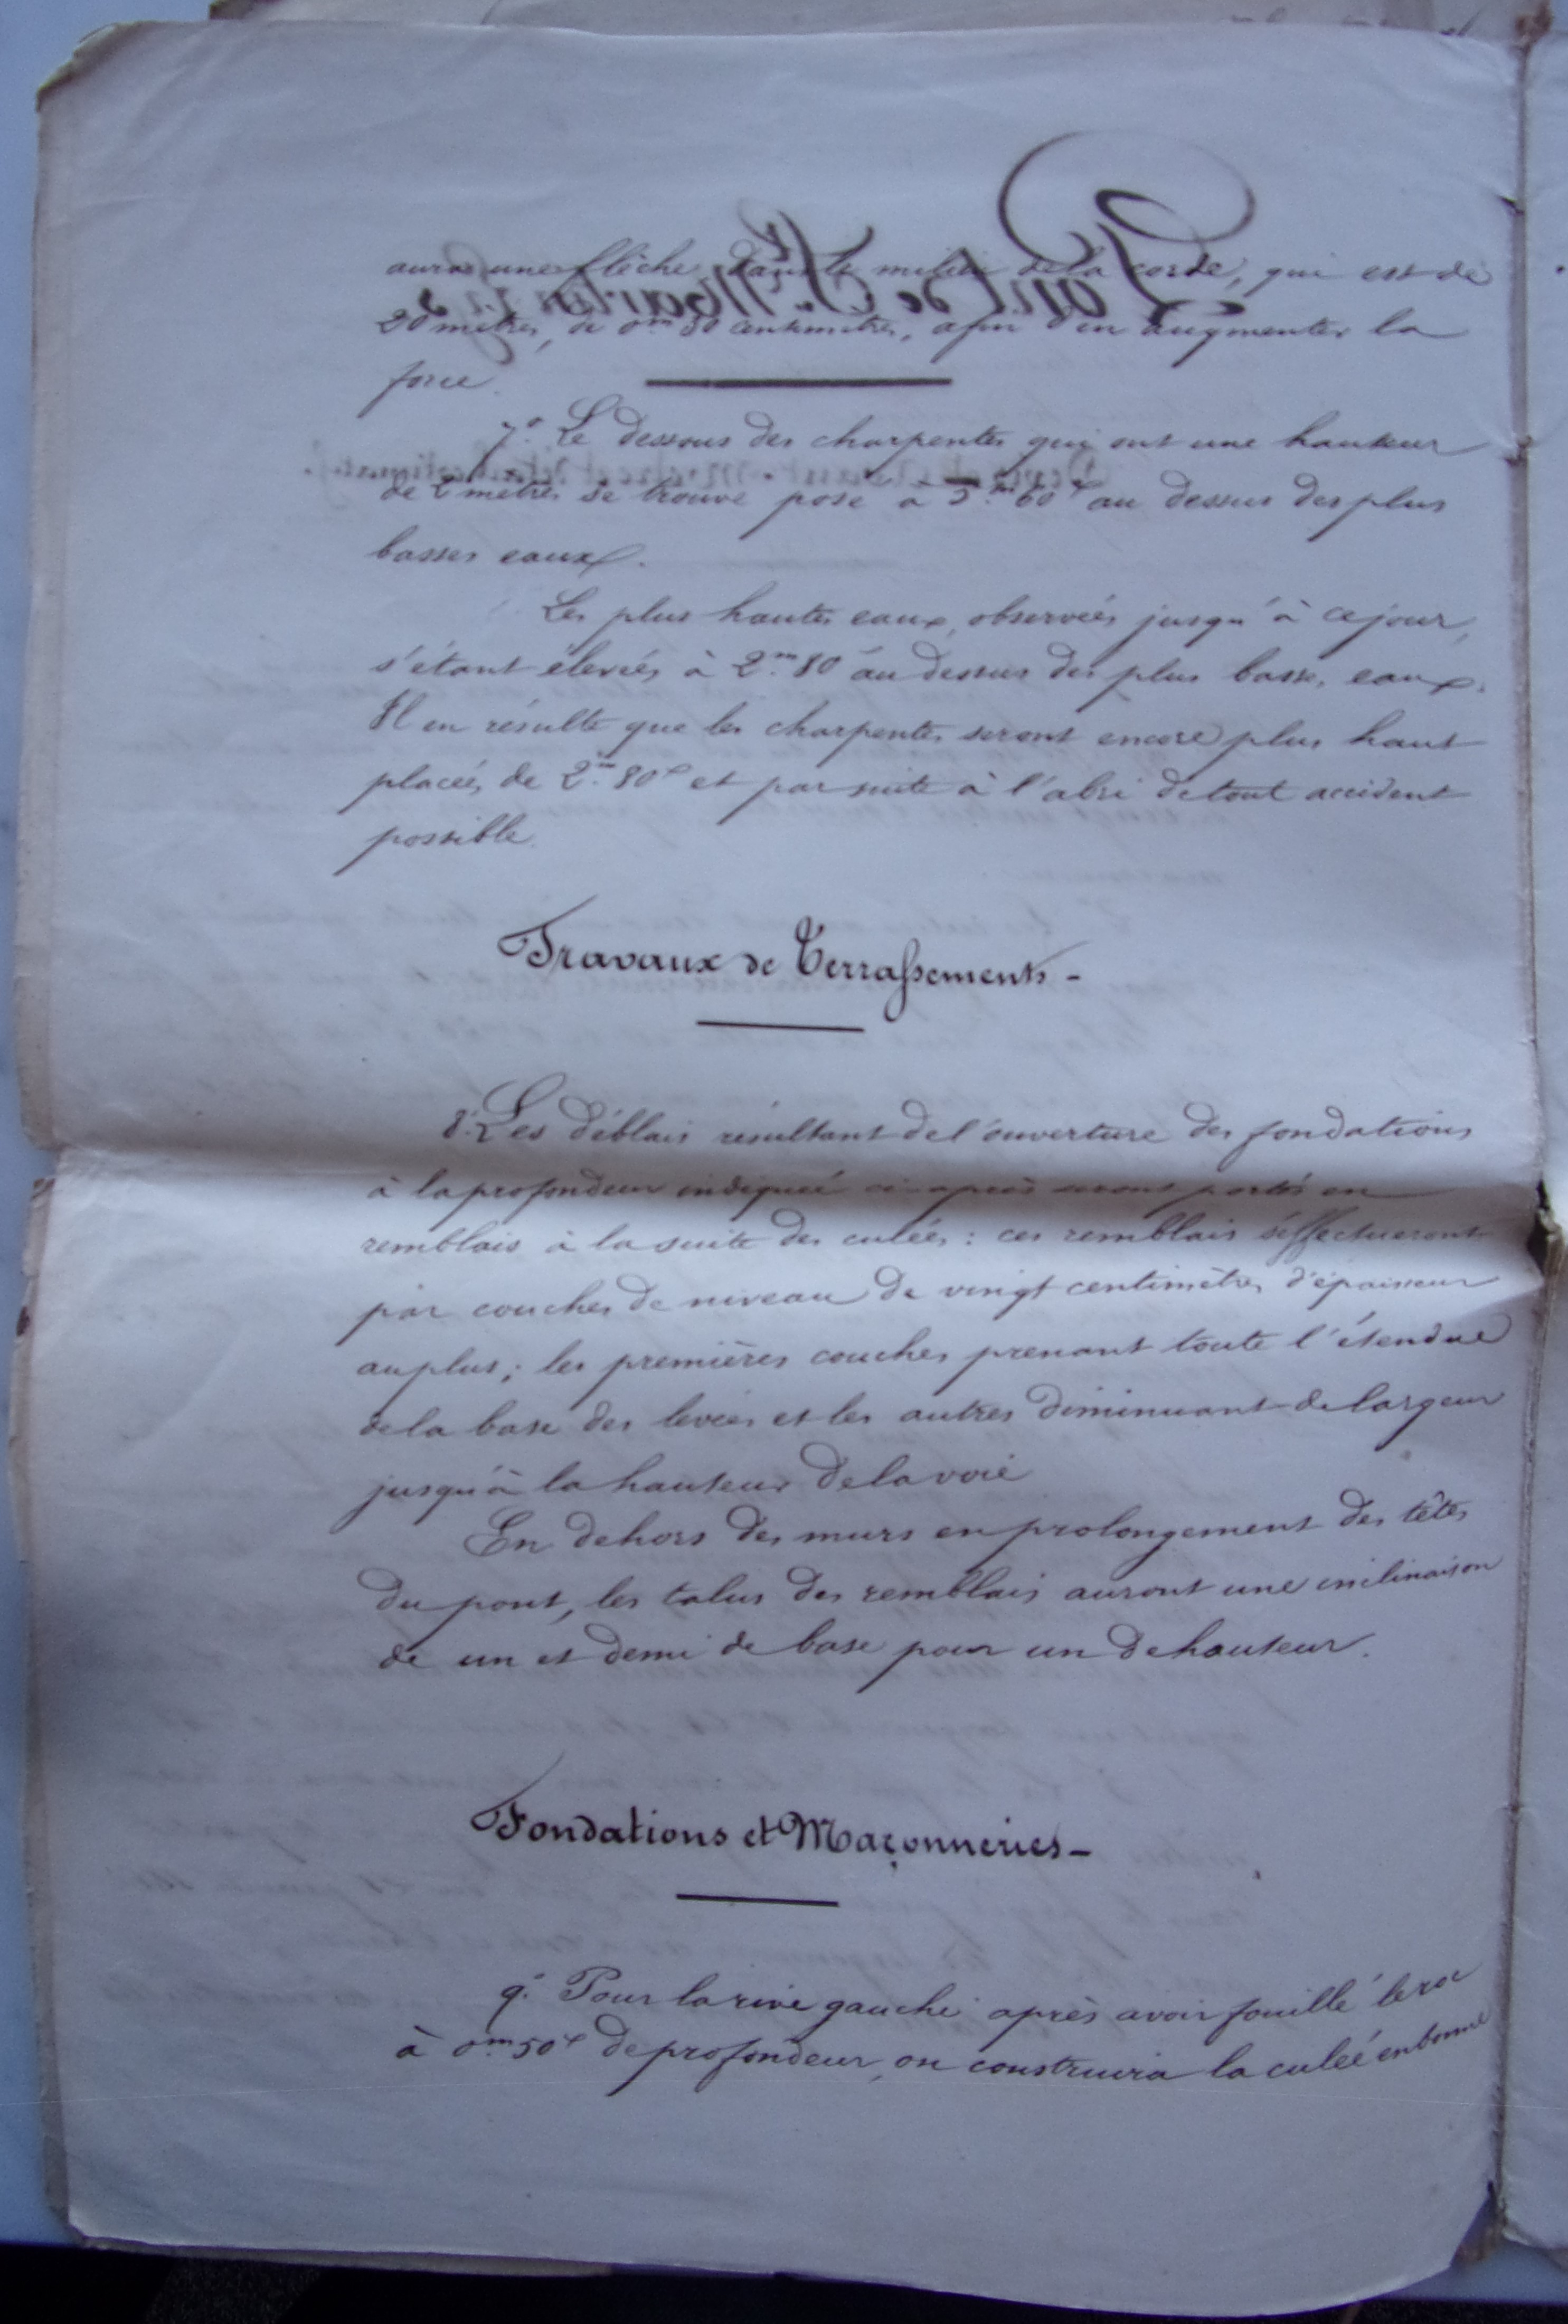 aura une flèche, dans le milieu de la corde, qui est de
20 mètres, de 0m 80 centimètres, afin d'en augmenter la
force.
7° Le dessous des charpentes qui ont une hauteur
de 2 mètres se trouve posé à 5m 60c au dessus des plus
basses eaux.
Les plus hautes eaux, observées jusqu'à ce jour,
s'étant élevées à 2m 80 au dessus des plus basses eaux.
Il en résulte que les charpentes seront encore plus haut
placées de 2m 80c et par suite à l'abri de tout accident
possible.
Travaux de Terrassements -
8° Les déblais résultant de l'ouverture des fondations
à la profondeur indiquée ci-après seront portés en
remblais à la suite des culées : ces remblais s'effectueront
par couches de niveau de vingt centimètres d'épaisseur
au plus ; les premières couches prenant toute l'étendue
de la base des levées et les autres diminuant de largeur
jusqu'à la hauteur de la voie
En dehors des murs en prolongement des têtes
du pont, les talus des remblais auront une inclinaison
de un et demi de base pour un de hauteur.
Fondations et Maçonneries -
9° Pour la rive gauche après avoir fouillé le roc
à 0m 50c de profondeur, on construira la culée en bonne